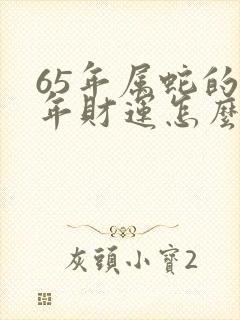 65年属蛇的
年財運怎麼
灰頭小寶2